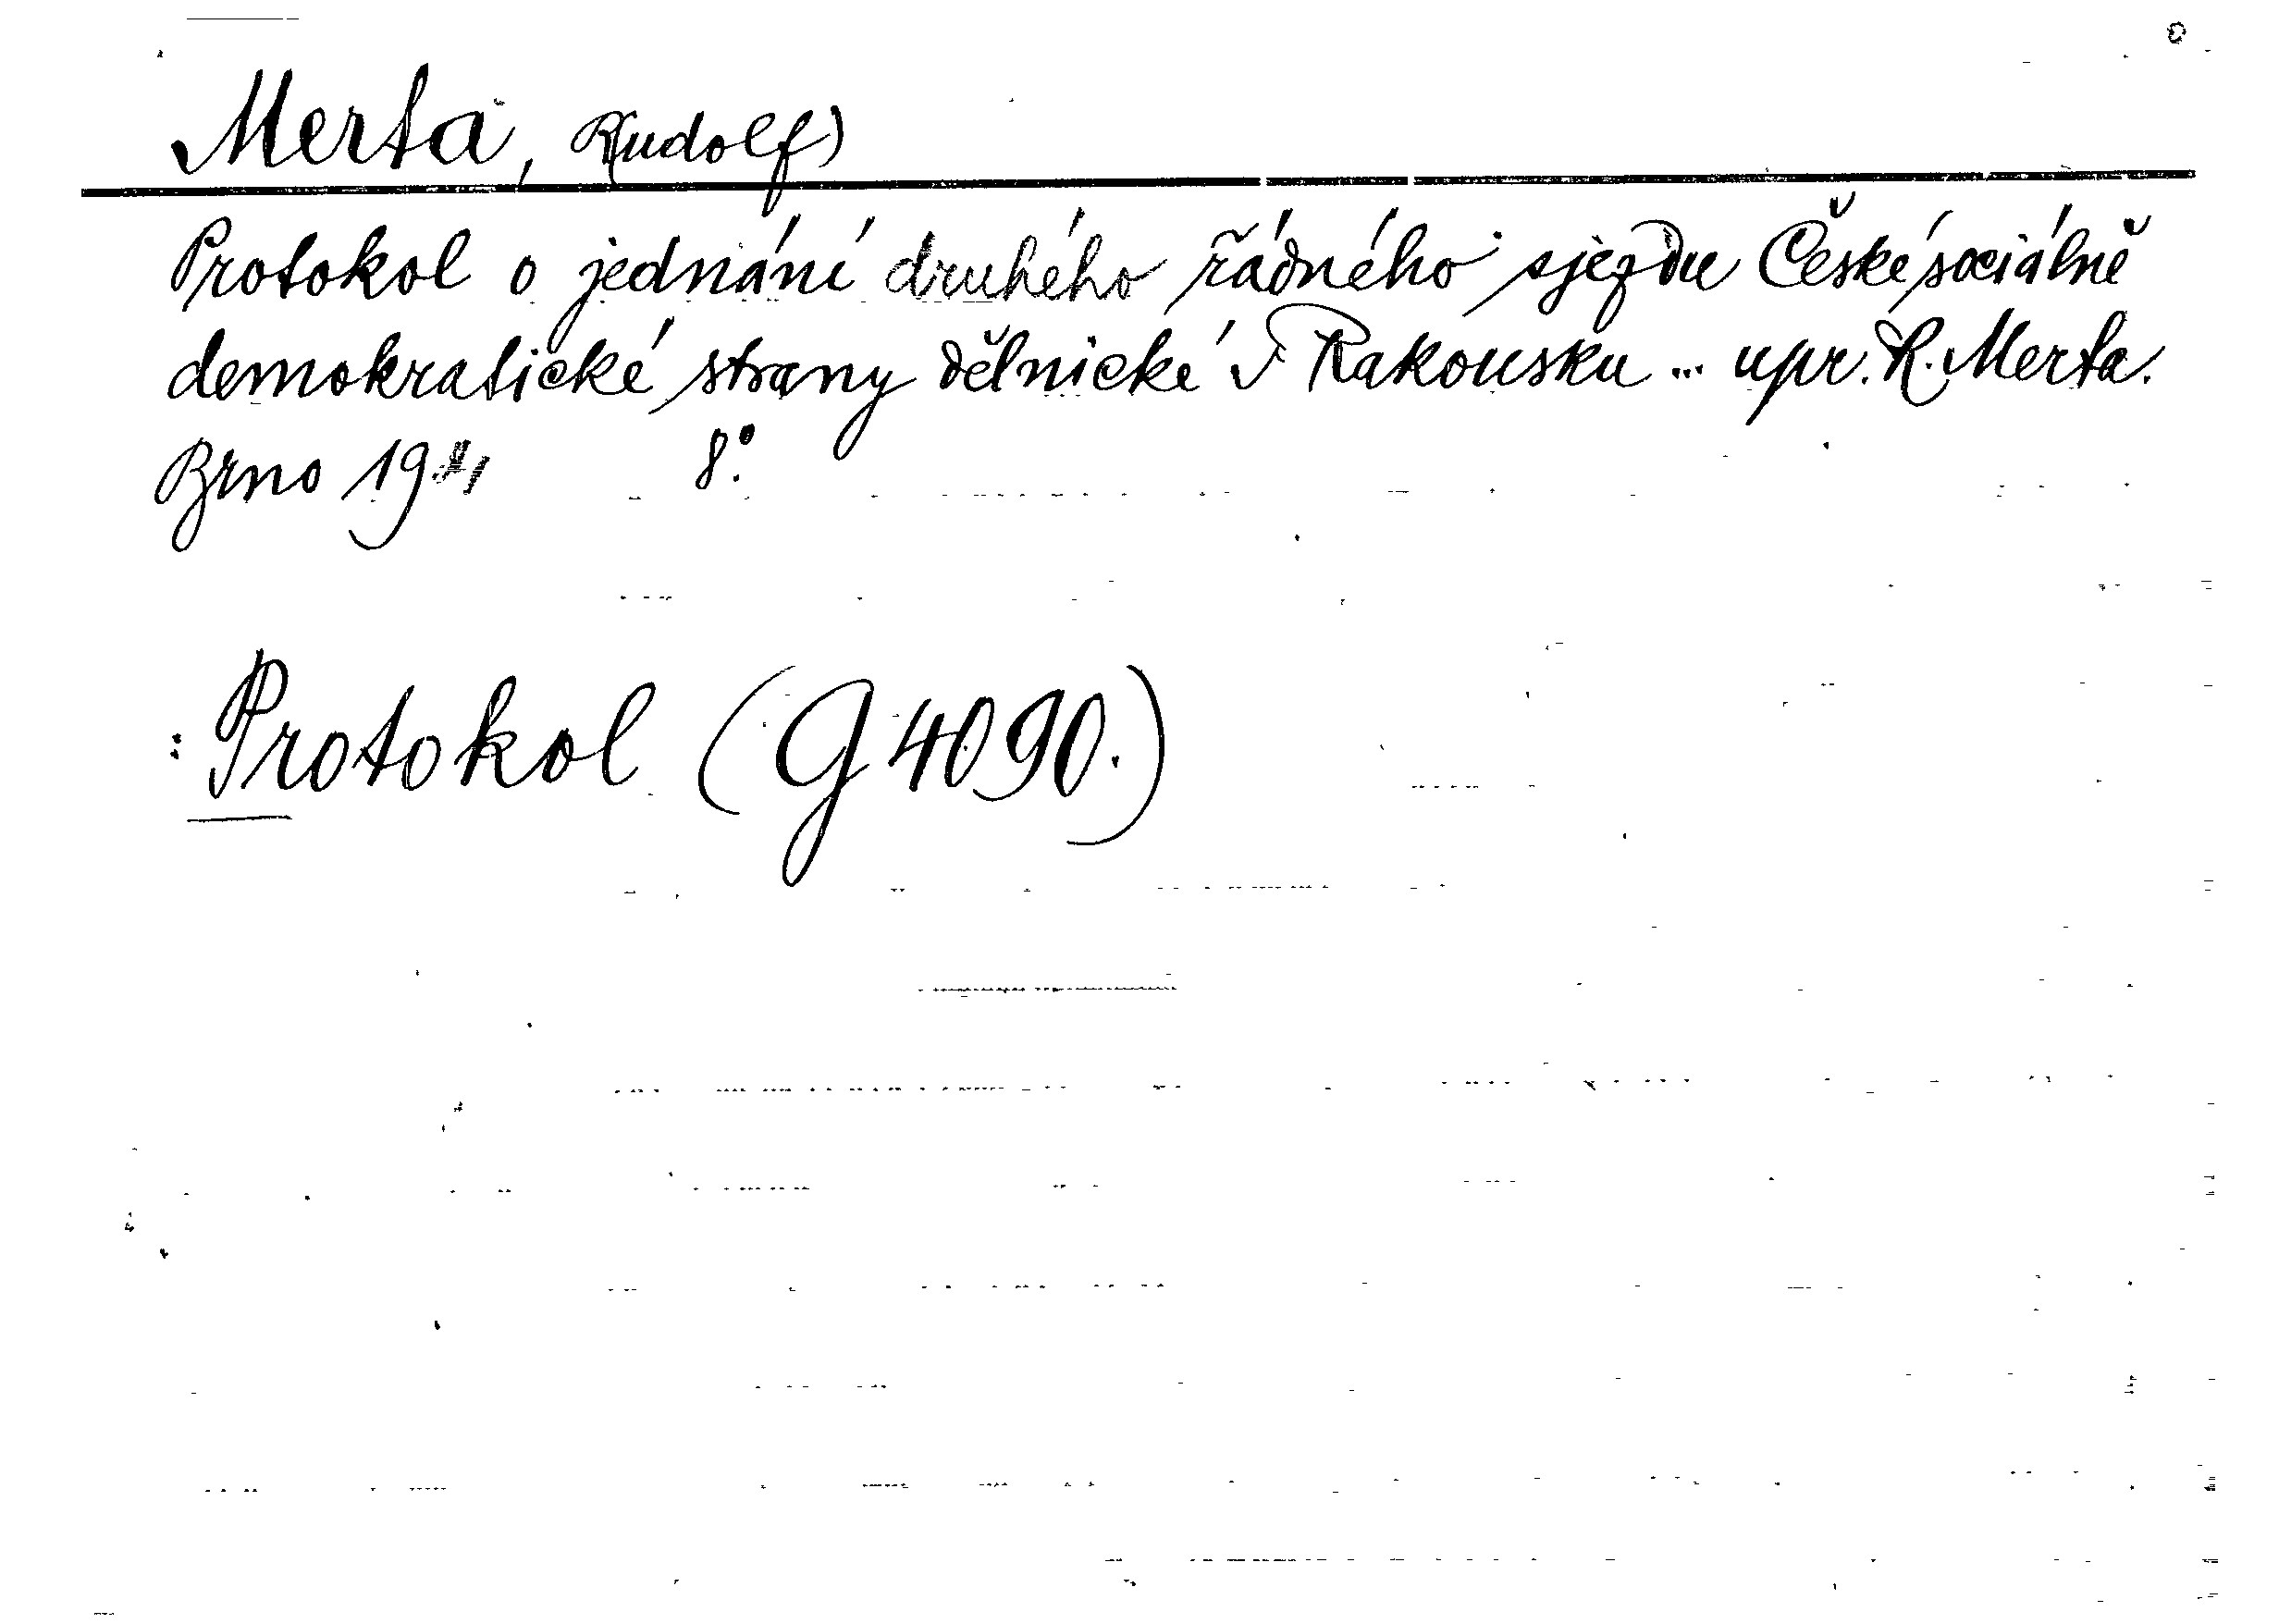 Merta, R(udolf)
Protokol o jednání druhého řádného sjezdu České sociálně
demokratické strany dělnické v Rakousku ... upr. R. Merta.
Brno 8°.
: Protokol (G 4090.)